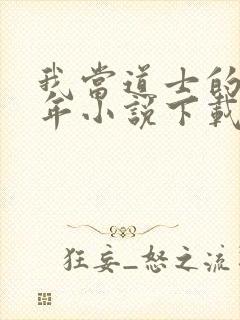 我當道士的
年小說下載
狂妄_怒之流